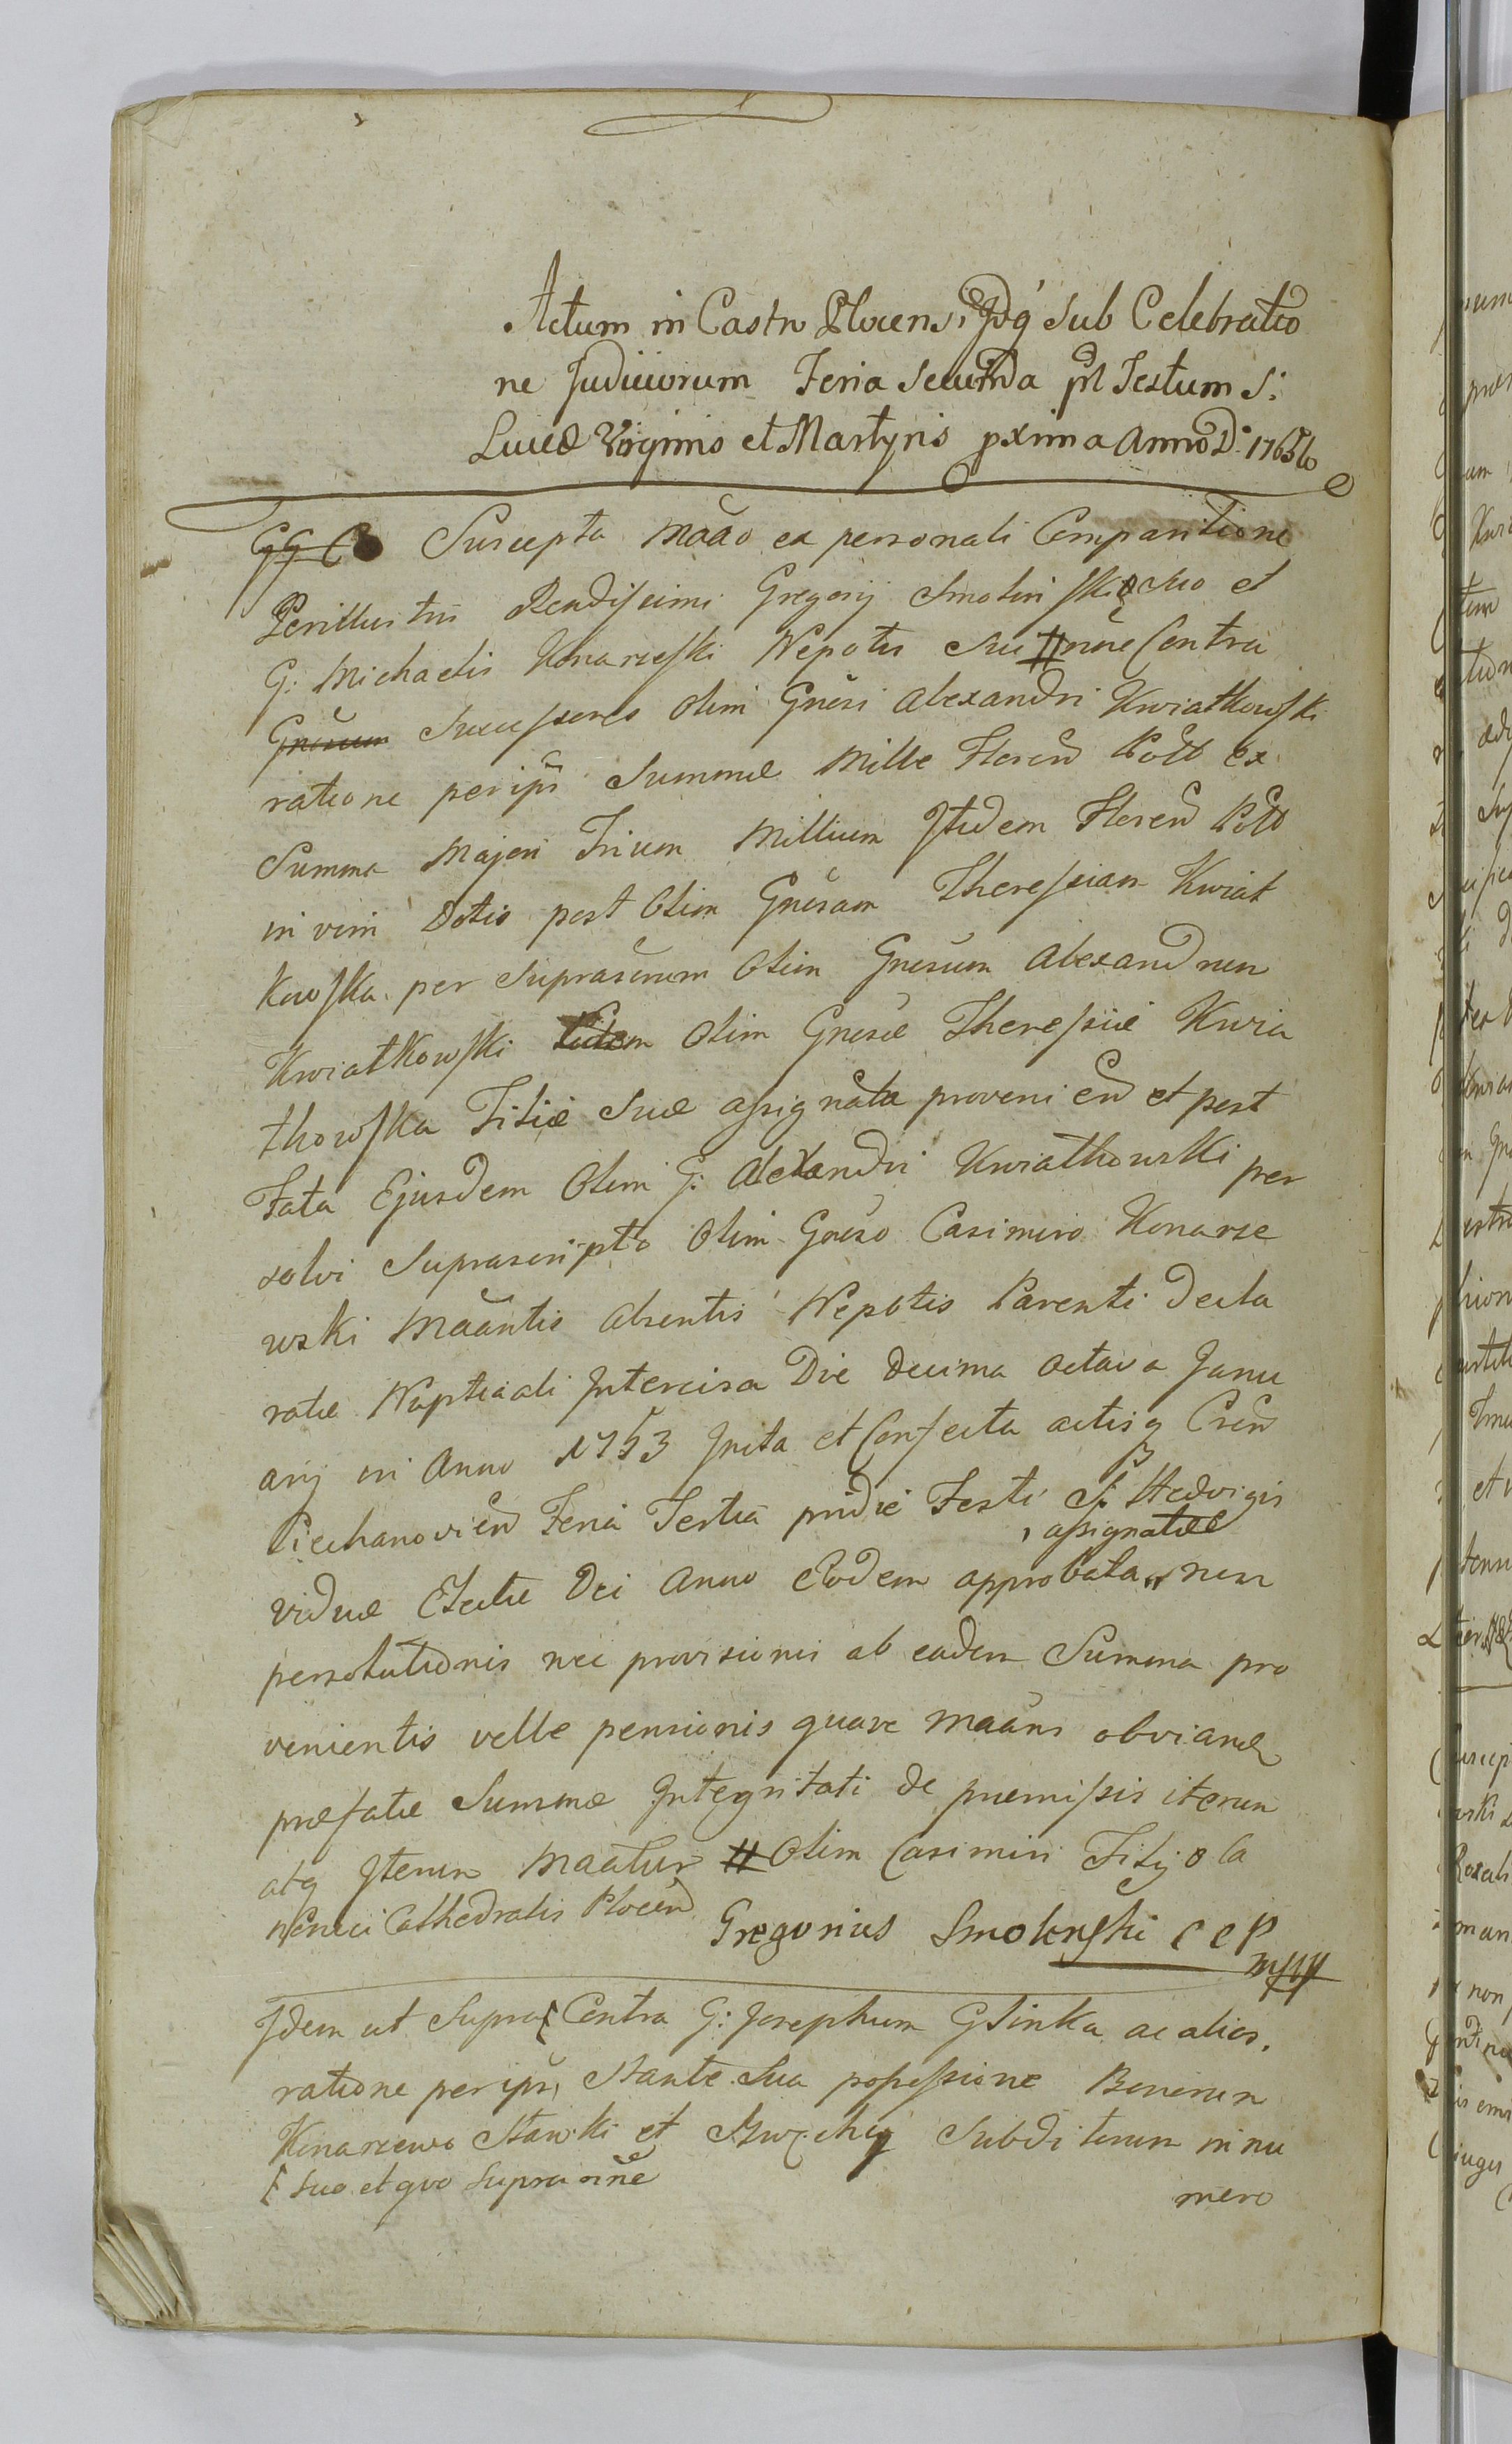 Actum in Castro Plocensi Ipõq sub Celebratio
ne Judiciorum Feria Secunda pt Festum S:
Luciæ Virginis et Martyris pxima Anno D: 1765to
Suscepta Mãão ex personali Comparitione
Perillustris Rendissimi Gregorij Smolinski o suo et
G: Michaelis Konarzeski Nepotis sui # nñe Contra
Gnrosum Successores olim Gnrosi Alexandri Kwiatkowski
ratione perips Summæ Mille Floren Poll ex
Summa Majori Trium Millium Itidem Floren Poll
in vim Dotis post Olim Gnrosam Theressiam Kwiat
kowska per suprascrum Olim Gnrosum Alexandrum
Kwiatkowski Olim Gnrosæ Theressiæ Kwia
tkowska Filiæ suæ assignata provenien et post
Fata Ejusdem Olim G: Alexandri Kwiatkowski per
solvi suprascripto Olim Gnroso Casimiro Konarze
wski Mããntis absentis Nepotis Parenti Decla
ratæ Nuptiaali Intercisa Die Decima octava Janu
arij in Anno 1753 Inita et Confecta actisq Cren
Ciechanovien Feria Tertia pridie Festi S. Hedvigis
, assignatæ
viduæ Electæ Dei Anno Eodem approbata " non
persolutionis nec provisionis ab eadem Summa pro
venientis velle pensionis quare Mããns obviando
præfatæ Summæ Integritati de præmissis iterum
atq Iterum Mããtur # Olim Casimiri Filij o Ca
nonici Cathedralis Plocen
Gregorius Smolenski C C P
mpp
Idem ut Supra [ Contra G: Josephum Glinka ac alios,
ratione perips, stante sua possessione Bonorum
Konarzewo Skawki et subditorum in nu
[ suo et quo supra nñe
mero